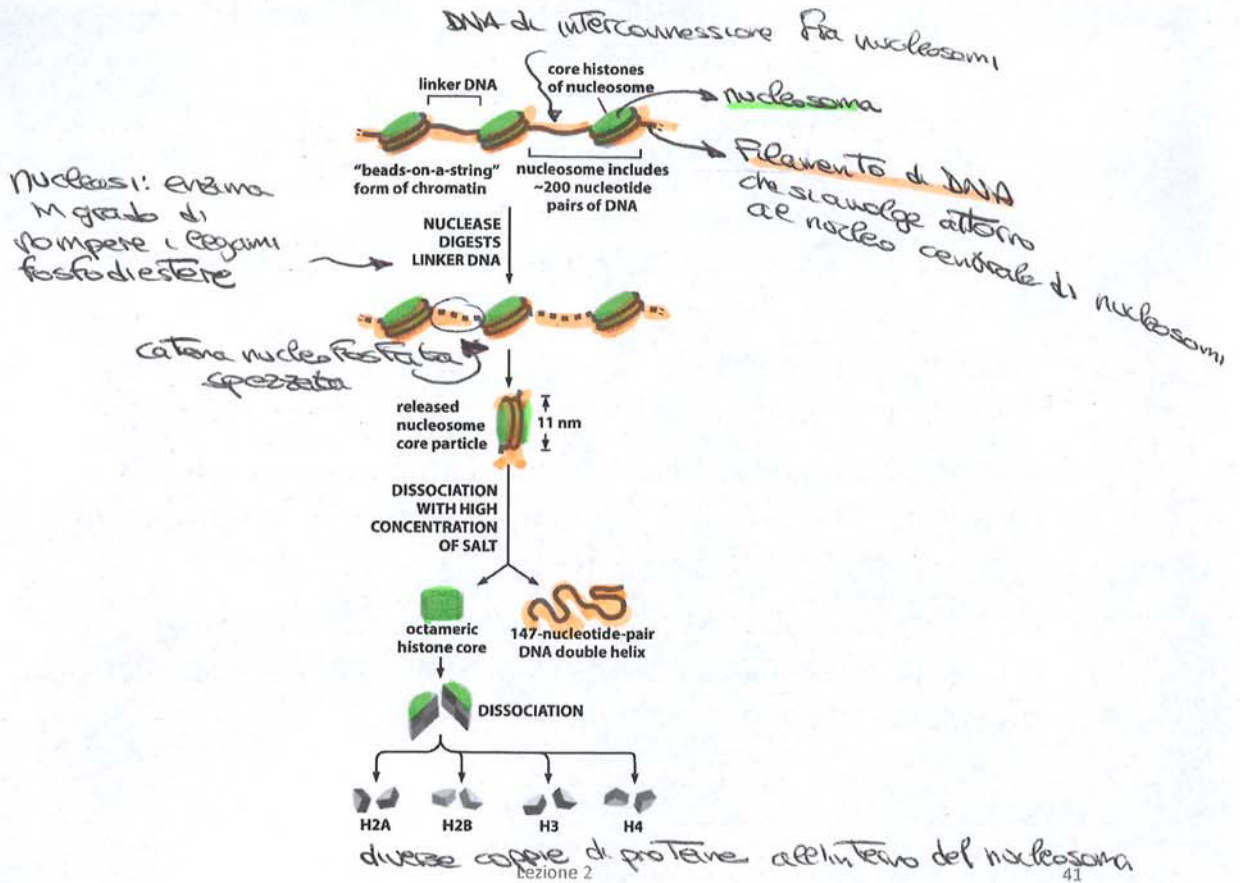 DNA di interconnessione fra nucleosomi
linker DNA
core histones
of nucleosome
nucleosoma
Filamento di DNA
che si avvolge attorno
al nucleo centrale di nucleosomi
"beads-on-a-string"
form of chromatin
nucleosome includes
~200 nucleotide
pairs of DNA
nucleasi: enzima
in grado di
rompere i legami
fosfodiestere
NUCLEASE
DIGESTS
LINKER DNA
catena nucleo fosfata
spezzata
released
nucleosome
core particle
11 nm
DISSOCIATION
WITH HIGH
CONCENTRATION
OF SALT
octameric
histone core
147-nucleotide-pair
DNA double helix
DISSOCIATION
H2A H2B H3 H4
diverse coppie di proteine all'interno del nucleosoma
Lezione 2
41